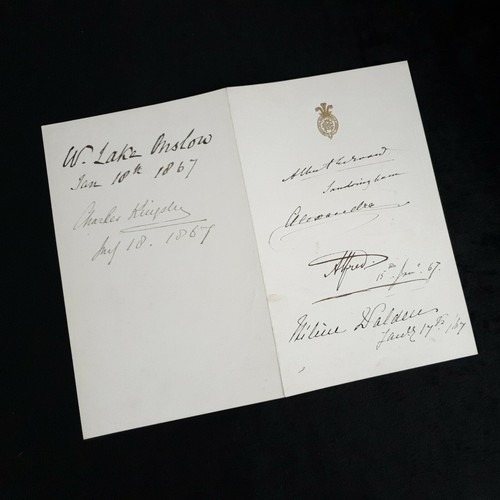 W. Lake Onslow
Jan 18th 1867
Charles Kingsley
July 18. 1867
Albert Edward
Sandringham
Alexandra
Alfred.
15th Jan. 67.
Jany 17th 1867